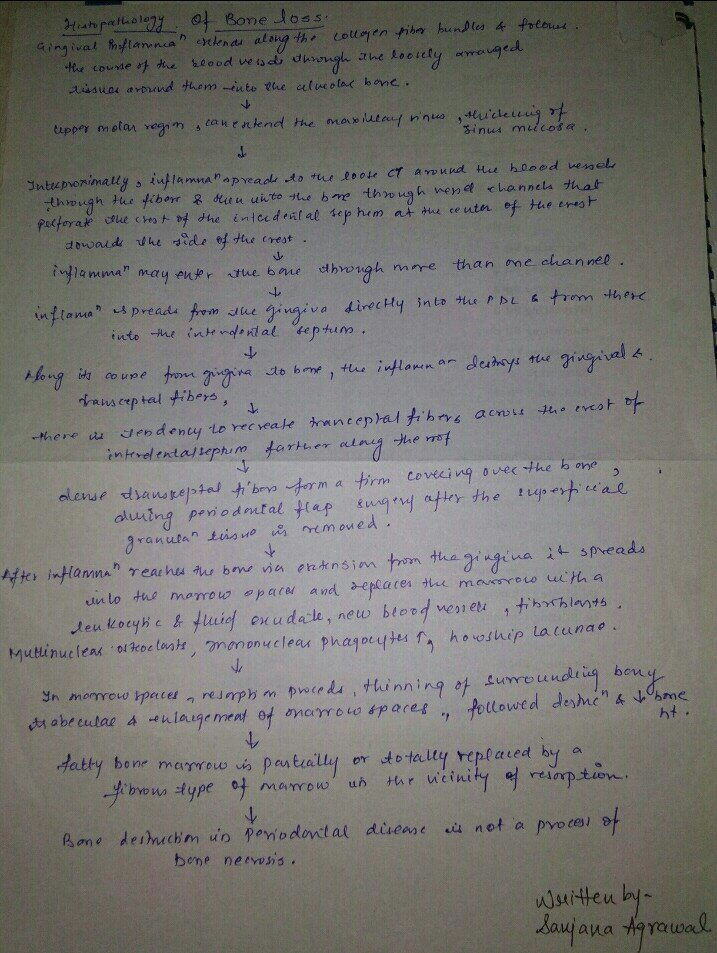 Histopathology Of Bone loss.
Gingival Inflammaⁿ extends along the collagen fiber bundles & follows
the course of the blood vessels through the loosely arranged
tissues around them into the alveolar bone.
↓
Upper molar region, can extend the maxillary sinus, thickening of
sinus mucosa.
↓
Interproximally, inflammaⁿ spreads to the loose CT around the blood vessels
through the fibers & then into the bone through vessel channels that
perforate the crest of the interdental septum at the center of the crest
towards the side of the crest.
↓
inflammaⁿ may enter the bone through more than one channel.
↓
inflamaⁿ spreads from the gingiva directly into the PDL & from there
into the interdental septum.
↓
Along its course from gingiva to bone, the inflammaⁿ destroys the gingival &
transceptal fibers,
↓
there is tendency to recreate tranceptal fibers across the crest of
interdental septum farther along the root
↓
dense transceptal fibers form a firm covering over the bone,
during periodontal flap surgery after the superficial
granulaⁿ tissue is removed.
↓
After inflammaⁿ reaches the bone via extension from the gingiva it spreads
into the marrow spaces and replaces the marrow with a
leukocytic & fluid exudate, new blood vessels, fibroblasts.
Multinuclear osteoclasts, mononuclear phagocytes ↑, howship lacunae.
↓
In marrow spaces, resorption proceds, thinning of surrounding bony
trabeculae & enlargement of marrow spaces, followed destrucⁿ & ↓ bone
ht.
↓
fatty bone marrow is partially or totally replaced by a
fibrous type of marrow in the vicinity of resorption.
↓
Bone destruction in Periodontal disease is not a process of
bone necrosis.
Written by-
Sanjana Agrawal